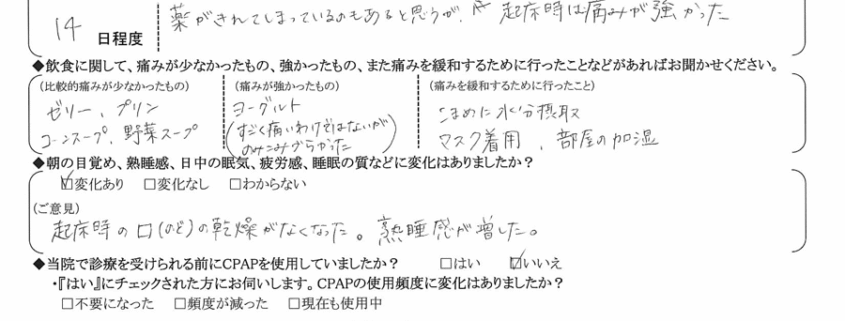 薬がきれてしまっているのもあると思うが、起床時は痛みが強かった
14 日程度
◆飲食に関して、痛みが少なかったもの、強かったもの、また痛みを緩和するために行ったことなどがあればお聞かせください。
(比較的痛みが少なかったもの) (痛みが強かったもの) (痛みを緩和するために行ったこと)
ゼリー、プリン ヨーグルト こまめに水分摂取
コーンスープ、野菜スープ (すごく痛いわけではないが マスク着用、部屋の加湿
のみこみづらかった)
◆朝の目覚め、熟睡感、日中の眠気、疲労感、睡眠の質などに変化はありましたか?
☑変化あり □変化なし □わからない
(ご意見)
起床時の口(のど)の乾燥がなくなった。熟睡感が増した。
◆当院で診療を受けられる前にCPAPを使用していましたか? □はい ☑いいえ
・『はい』にチェックされた方にお伺いします。CPAPの使用頻度に変化はありましたか?
□不要になった □頻度が減った □現在も使用中